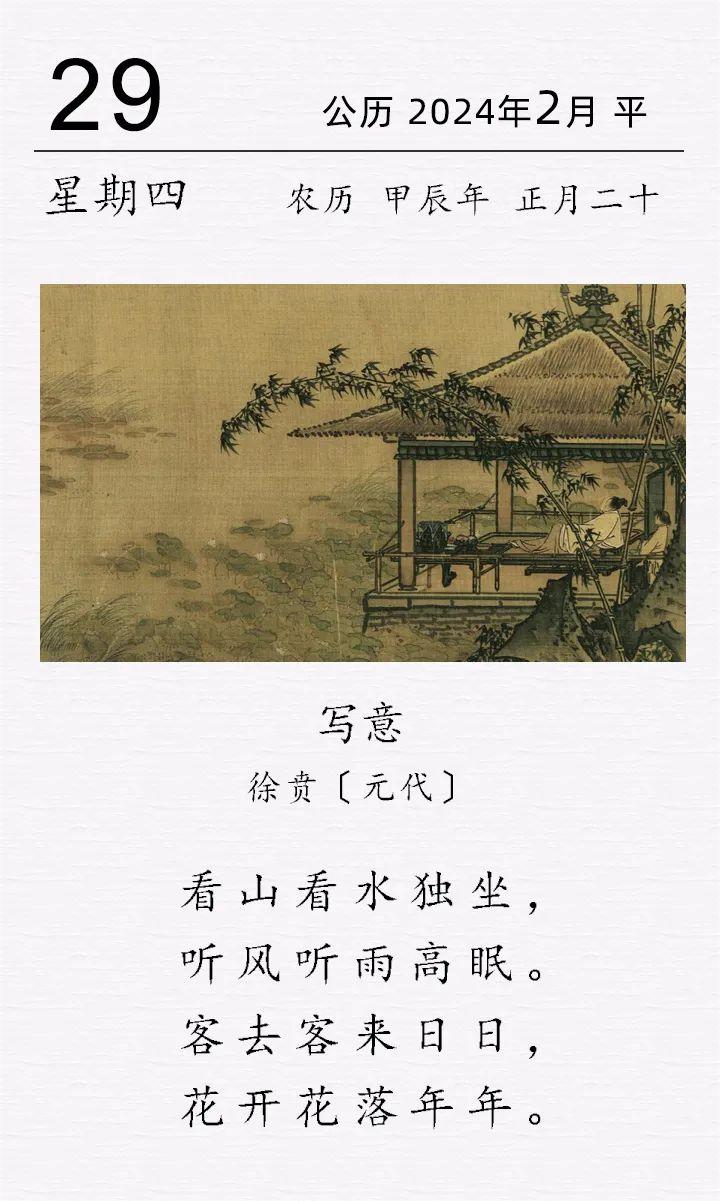 29
公历 2024年2月 平
星期四
农历 甲辰年 正月二十
写意
徐贲〔元代〕
看山看水独坐，
听风听雨高眠。
客去客来日日，
花开花落年年。